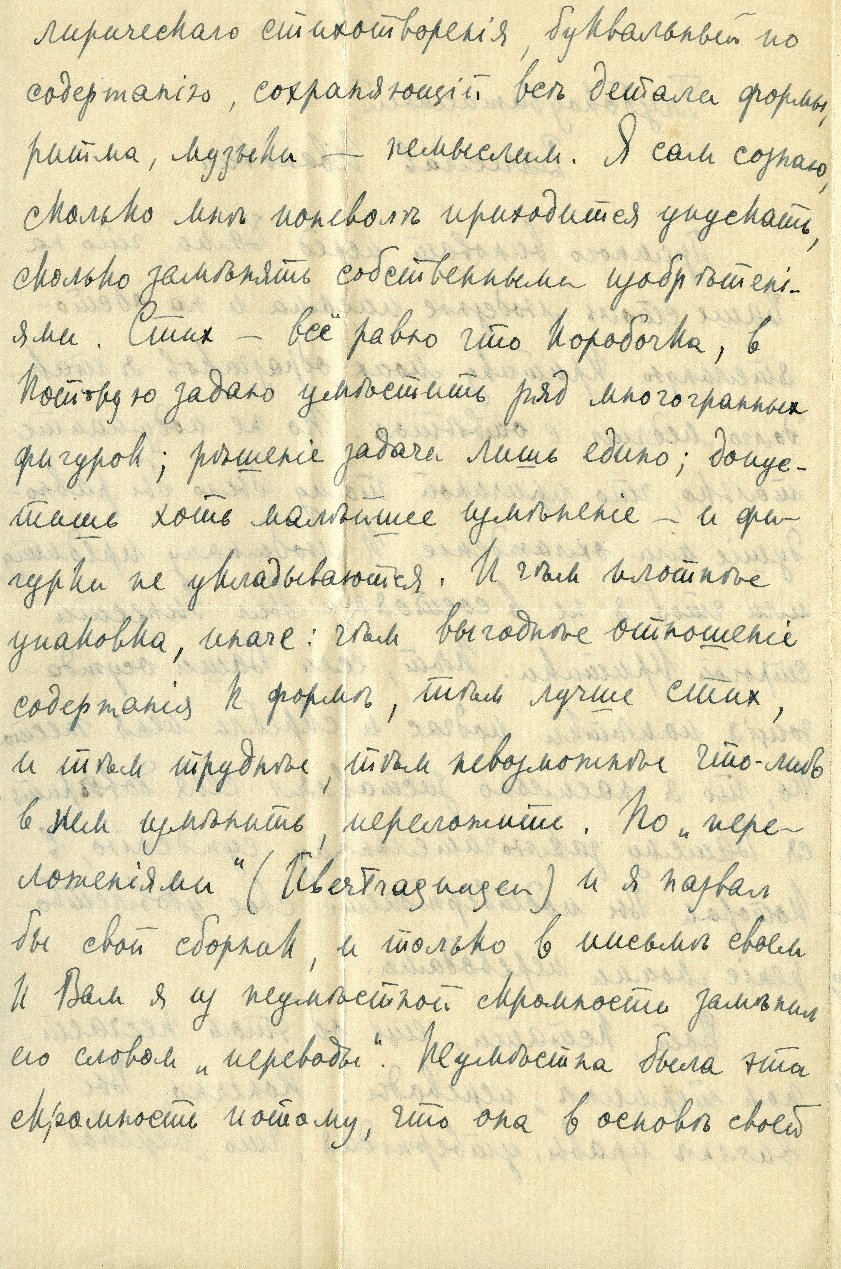 лирическаго стихотворенія, буквальный по
содержанію, сохраняющій всѣ детали формы,
ритма, музыки — немыслим. Я сам сознаю,
сколько мнѣ поневолѣ приходится упускать,
сколько замѣнять собственными изобрѣтені-
ями. Стих — всё равно что коробочка, в
которую задано умѣстить ряд многогранных
фигурок; рѣшеніе задачи лишь едино; допус-
тишь хоть малѣйшее измѣненіе — и фи-
гурки не укладываются. И чѣм плотнѣе
упаковка, иначе: чѣм выгоднѣе отношеніе
содержанія к формѣ, тѣм лучше стих,
и тѣм труднѣе, тѣм невозможнѣе что-либо
в нем измѣнить, переложить. Но „пере-
ложеніями“ (Übertragungen) и я назвал
бы свой сборник, и только в письмѣ своем
к Вам я из неумѣстной скромности замѣнил
его словом „переводы“. Неумѣстна была эта
скромность потому, что она в основѣ своей